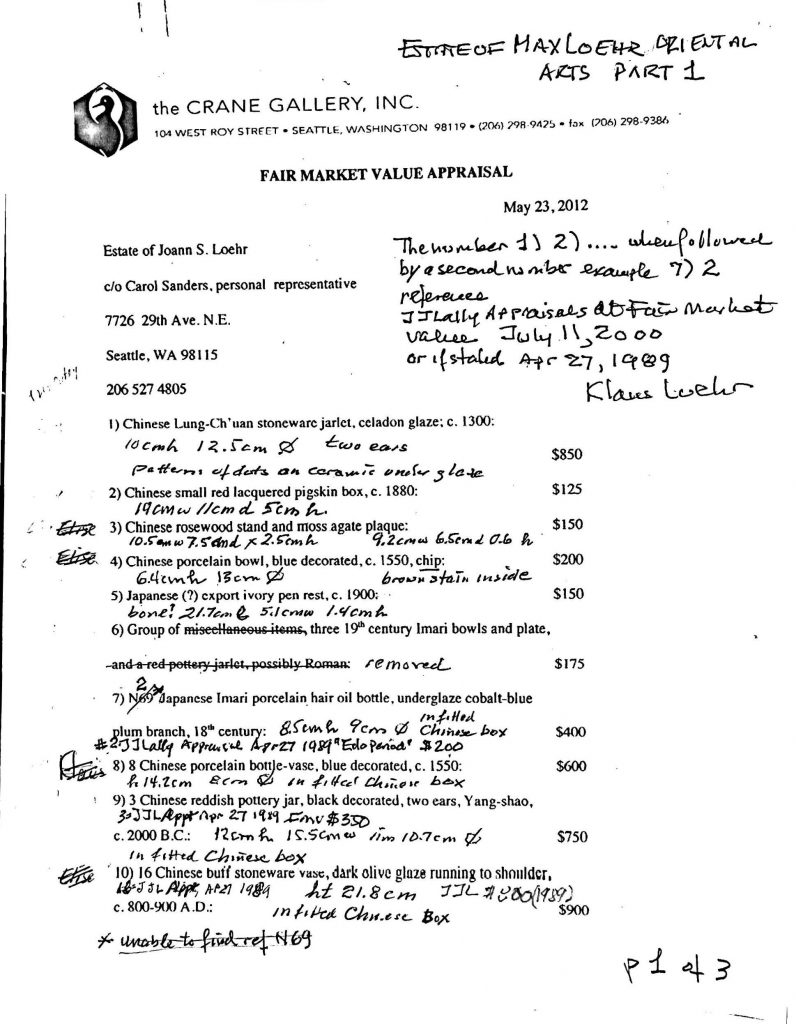 ESTATE OF MAX LOEHR ORIENTAL
ARTS PART 1
the CRANE GALLERY, INC.
104 WEST ROY STREET • SEATTLE, WASHINGTON 98119 • (206) 298-9425 • fax (206) 298-9386
FAIR MARKET VALUE APPRAISAL
May 23, 2012
Estate of Joann S. Loehr
c/o Carol Sanders, personal representative
7726 29th Ave. N.E.
Seattle, WA 98115
206 527 4805
The number 1) 2) .... when followed
by a second number example 7) 2
references
JJLally Appraisals at Fair Market
value July 11, 2000
or if stated Apr 27, 1989
Klaus Loehr
1) Chinese Lung-Ch'uan stoneware jarlet, celadon glaze; c. 1300:
10cmh 12.5cm Ø two ears $850
Patterns of dots on ceramic under glaze
2) Chinese small red lacquered pigskin box, c. 1880: $125
19cmw 11cmd 5cmh.
Elise 3) Chinese rosewood stand and moss agate plaque: $150
10.5cmw 7.5cmd x 2.5cmh 9.2cmw 6.5cmd 0.6 h
Elise 4) Chinese porcelain bowl, blue decorated, c. 1550, chip: $200
6.4cmh 13cm Ø brown stain inside
5) Japanese (?) export ivory pen rest, c. 1900: $150
bone? 21.7cm l 5.1cmw 1.4cmh
6) Group of miscellaneous items, three 19th century Imari bowls and plate,
and a red pottery jarlet, possibly Roman: removed $175
2
7) N69 Japanese Imari porcelain hair oil bottle, underglaze cobalt-blue
plum branch, 18th century: 8.5cmh 9cm Ø in fitted Chinese box $400
#2 JJLally Appraisal Apr 27 1989 "Edo Period" $200
Klaus 8) 8 Chinese porcelain bottle-vase, blue decorated, c. 1550: $600
h 14.2cm 8cm Ø in fitted Chinese box
9) 3 Chinese reddish pottery jar, black decorated, two ears, Yang-shao,
3 JJL Appr Apr 27 1989 FMV $350
c. 2000 B.C.: 12cmh 15.5cmw rim 10.7cm Ø $750
in fitted Chinese box
Elise 10) 16 Chinese buff stoneware vase, dark olive glaze running to shoulder,
16 JJL Appr, Ap 27 1989 ht 21.8cm JJL (1989)
c. 800-900 A.D.: in fitted Chinese Box $900
* unable to find ref N69
p 1 of 3